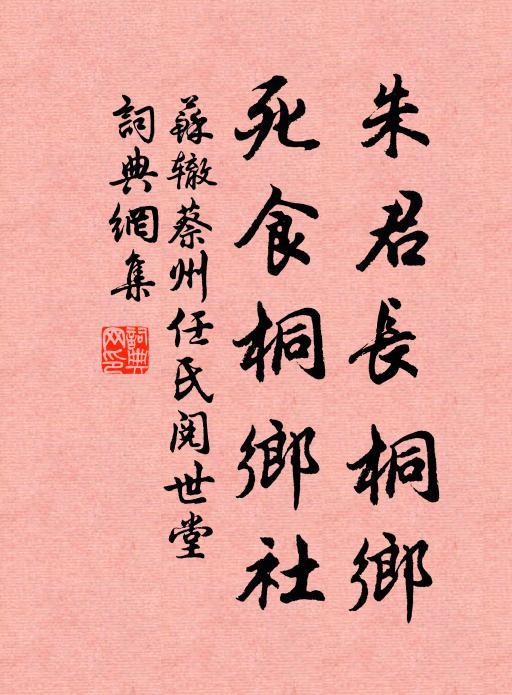 朱君長桐鄉
死食桐鄉社
蘇辙蔡州任氏阅世堂
詞典網集
詞典网印